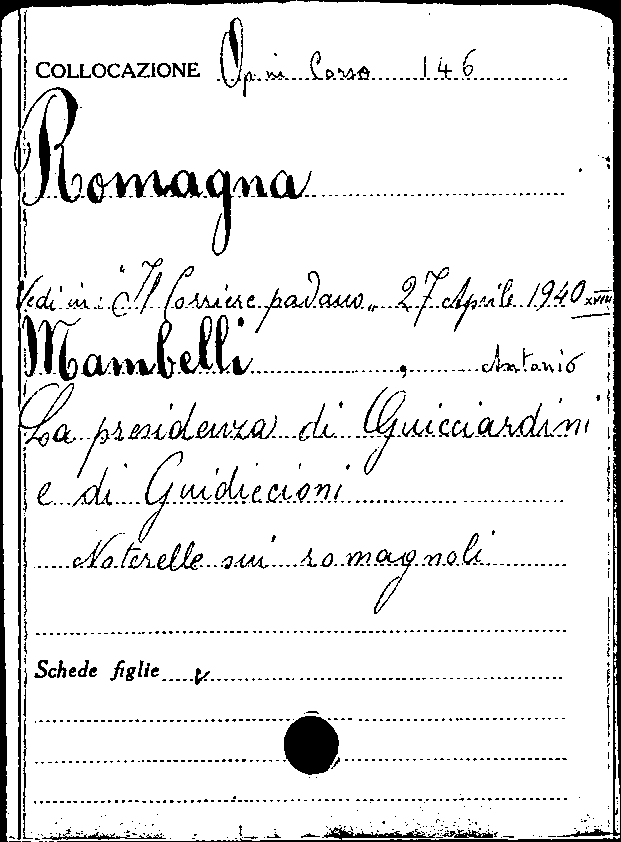 COLLOCAZIONE Op. in Corso 146
Romagna
Vedi in: "Il Corriere padano" 27 Aprile 1940 XVIII
Mambelli, Antonio
La presidenza di Guicciardini
e di Guidiccioni
Noterelle sui romagnoli
Schede figlie v